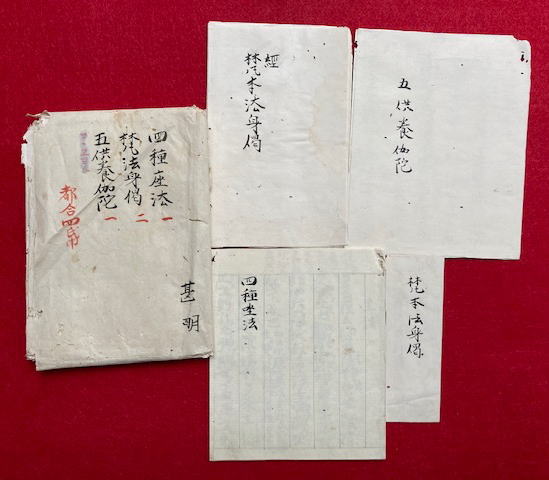 四種座法 一
梵法身偈 二
五供養伽陀 一
都合四帋
甚明
經
梵本法身偈
五供養伽陀
四種坐法
梵本法身偈